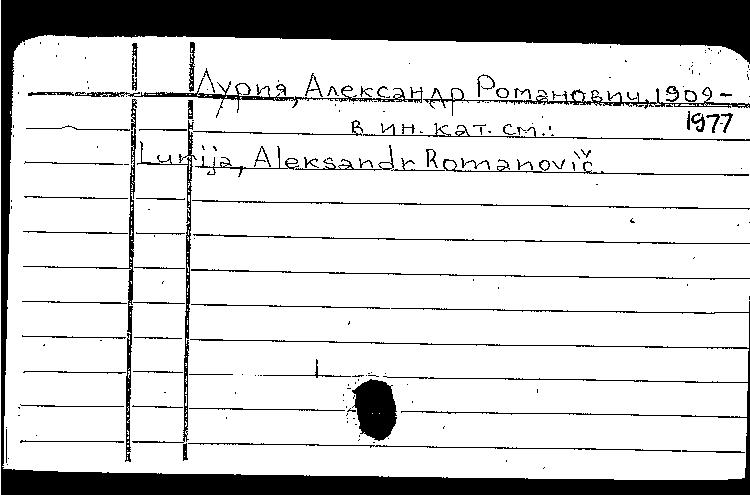 Лурия, Александр Романович, 1909-
1977
в ин. кат. см.:
Lurija, Aleksandr Romanovič.